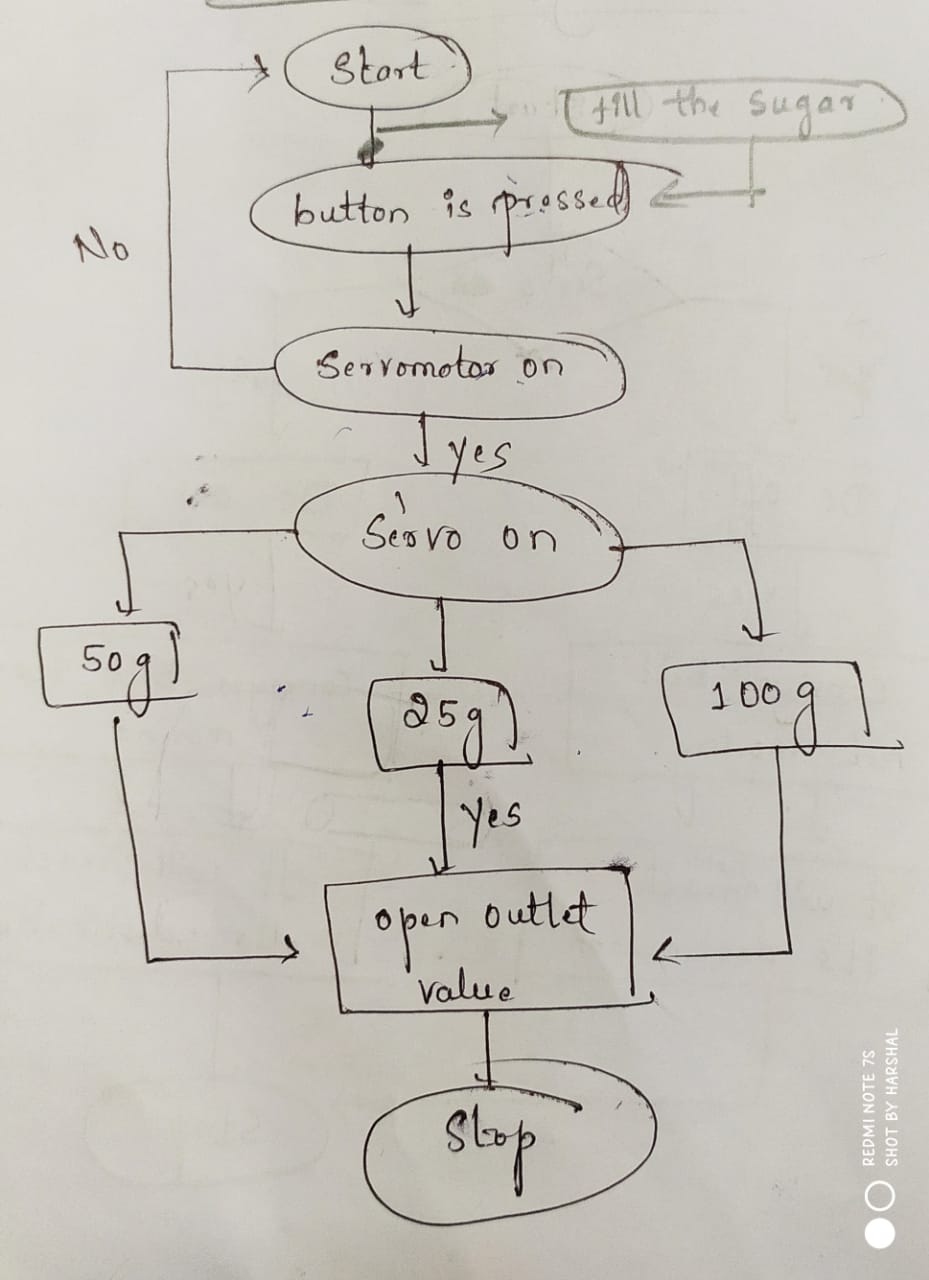 Start
fill the sugar
button is pressed
No
Servomotor on
yes
Servo on
50g
25g
100g
yes
open outlet
value
Stop
REDMI NOTE 7S
SHOT BY HARSHAL